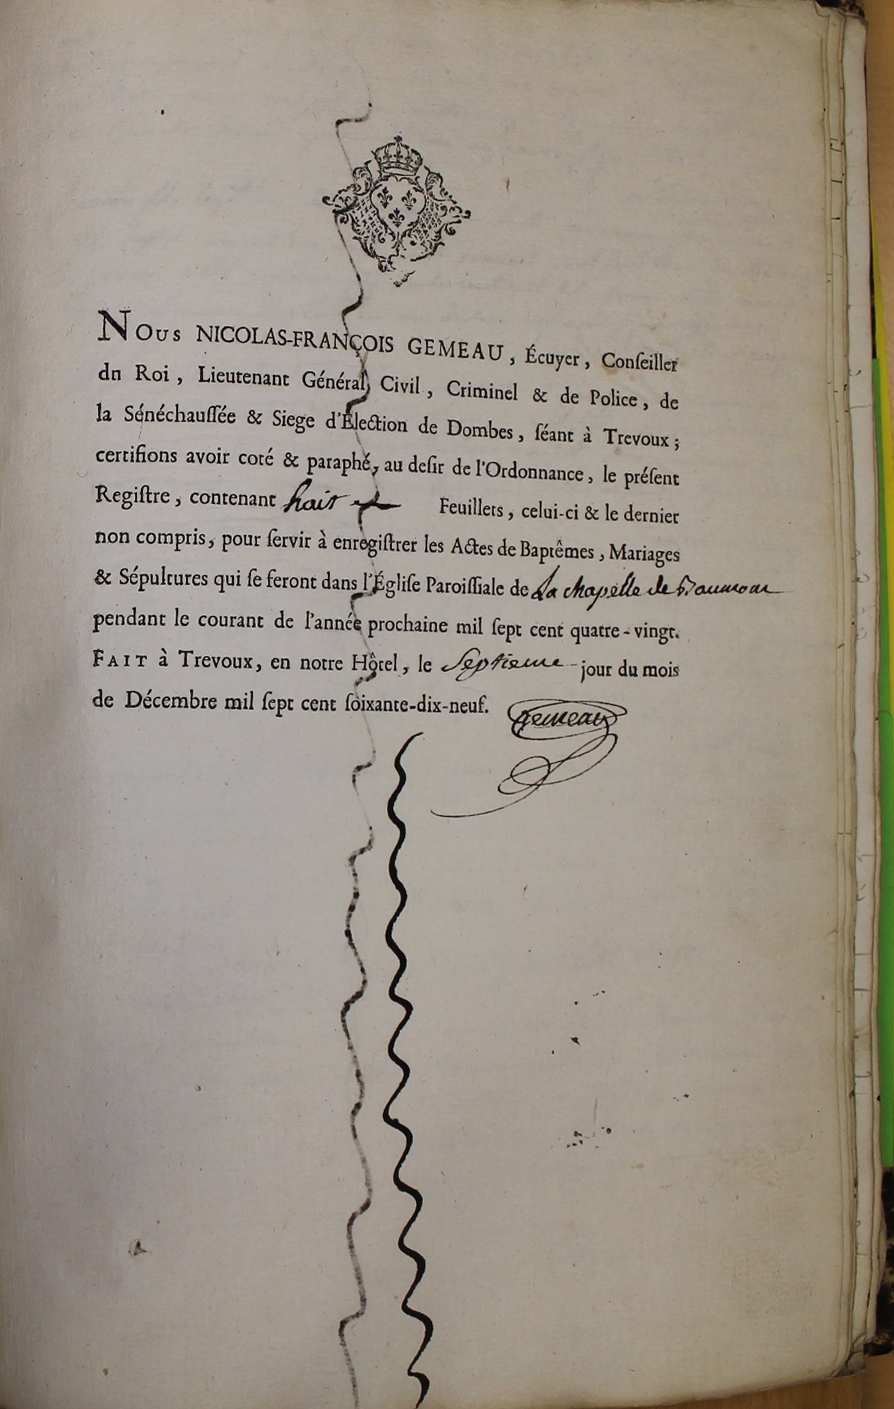 Nous NICOLAS-FRANÇOIS GEMEAU, Écuyer, Conſeiller
dn Roi, Lieutenant Général, Civil, Criminel & de Police, de
la Sénéchauſſée & Siege d'Election de Dombes, ſéant à Trevoux;
certifions avoir coté & paraphé, au deſir de l'Ordonnance, le préſent
Regiſtre, contenant huit Feuillets, celui-ci & le dernier
non compris, pour ſervir à enregiſtrer les Actes de Baptêmes, Mariages
& Sépultures qui ſe feront dans l'Égliſe Paroiſſiale de La chapelle de
pendant le courant de l'année prochaine mil ſept cent quatre-vingt.
FAIT à Trevoux, en notre Hôtel, le Septieme jour du mois
de Décembre mil ſept cent ſoixante-dix-neuf.
Gemeau